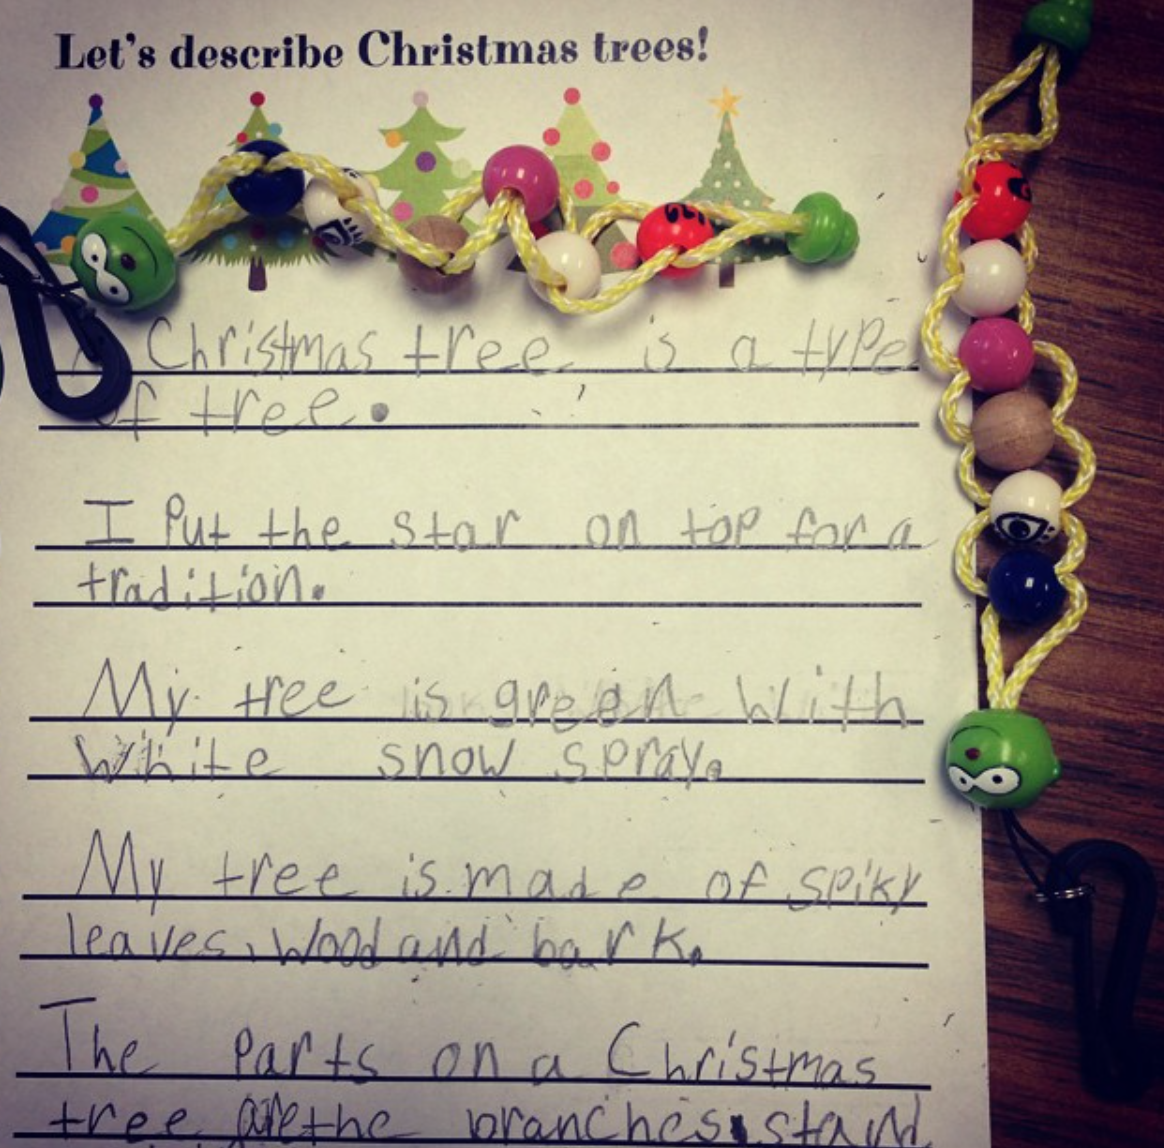 Let's describe Christmas trees!
Christmas tree is a type
of tree.
I put the star on top for a
tradition.
My tree is green with
white snow spray.
My tree is made of spiky
leaves, wood and bark.
The parts on a Christmas
tree are the branches, stand